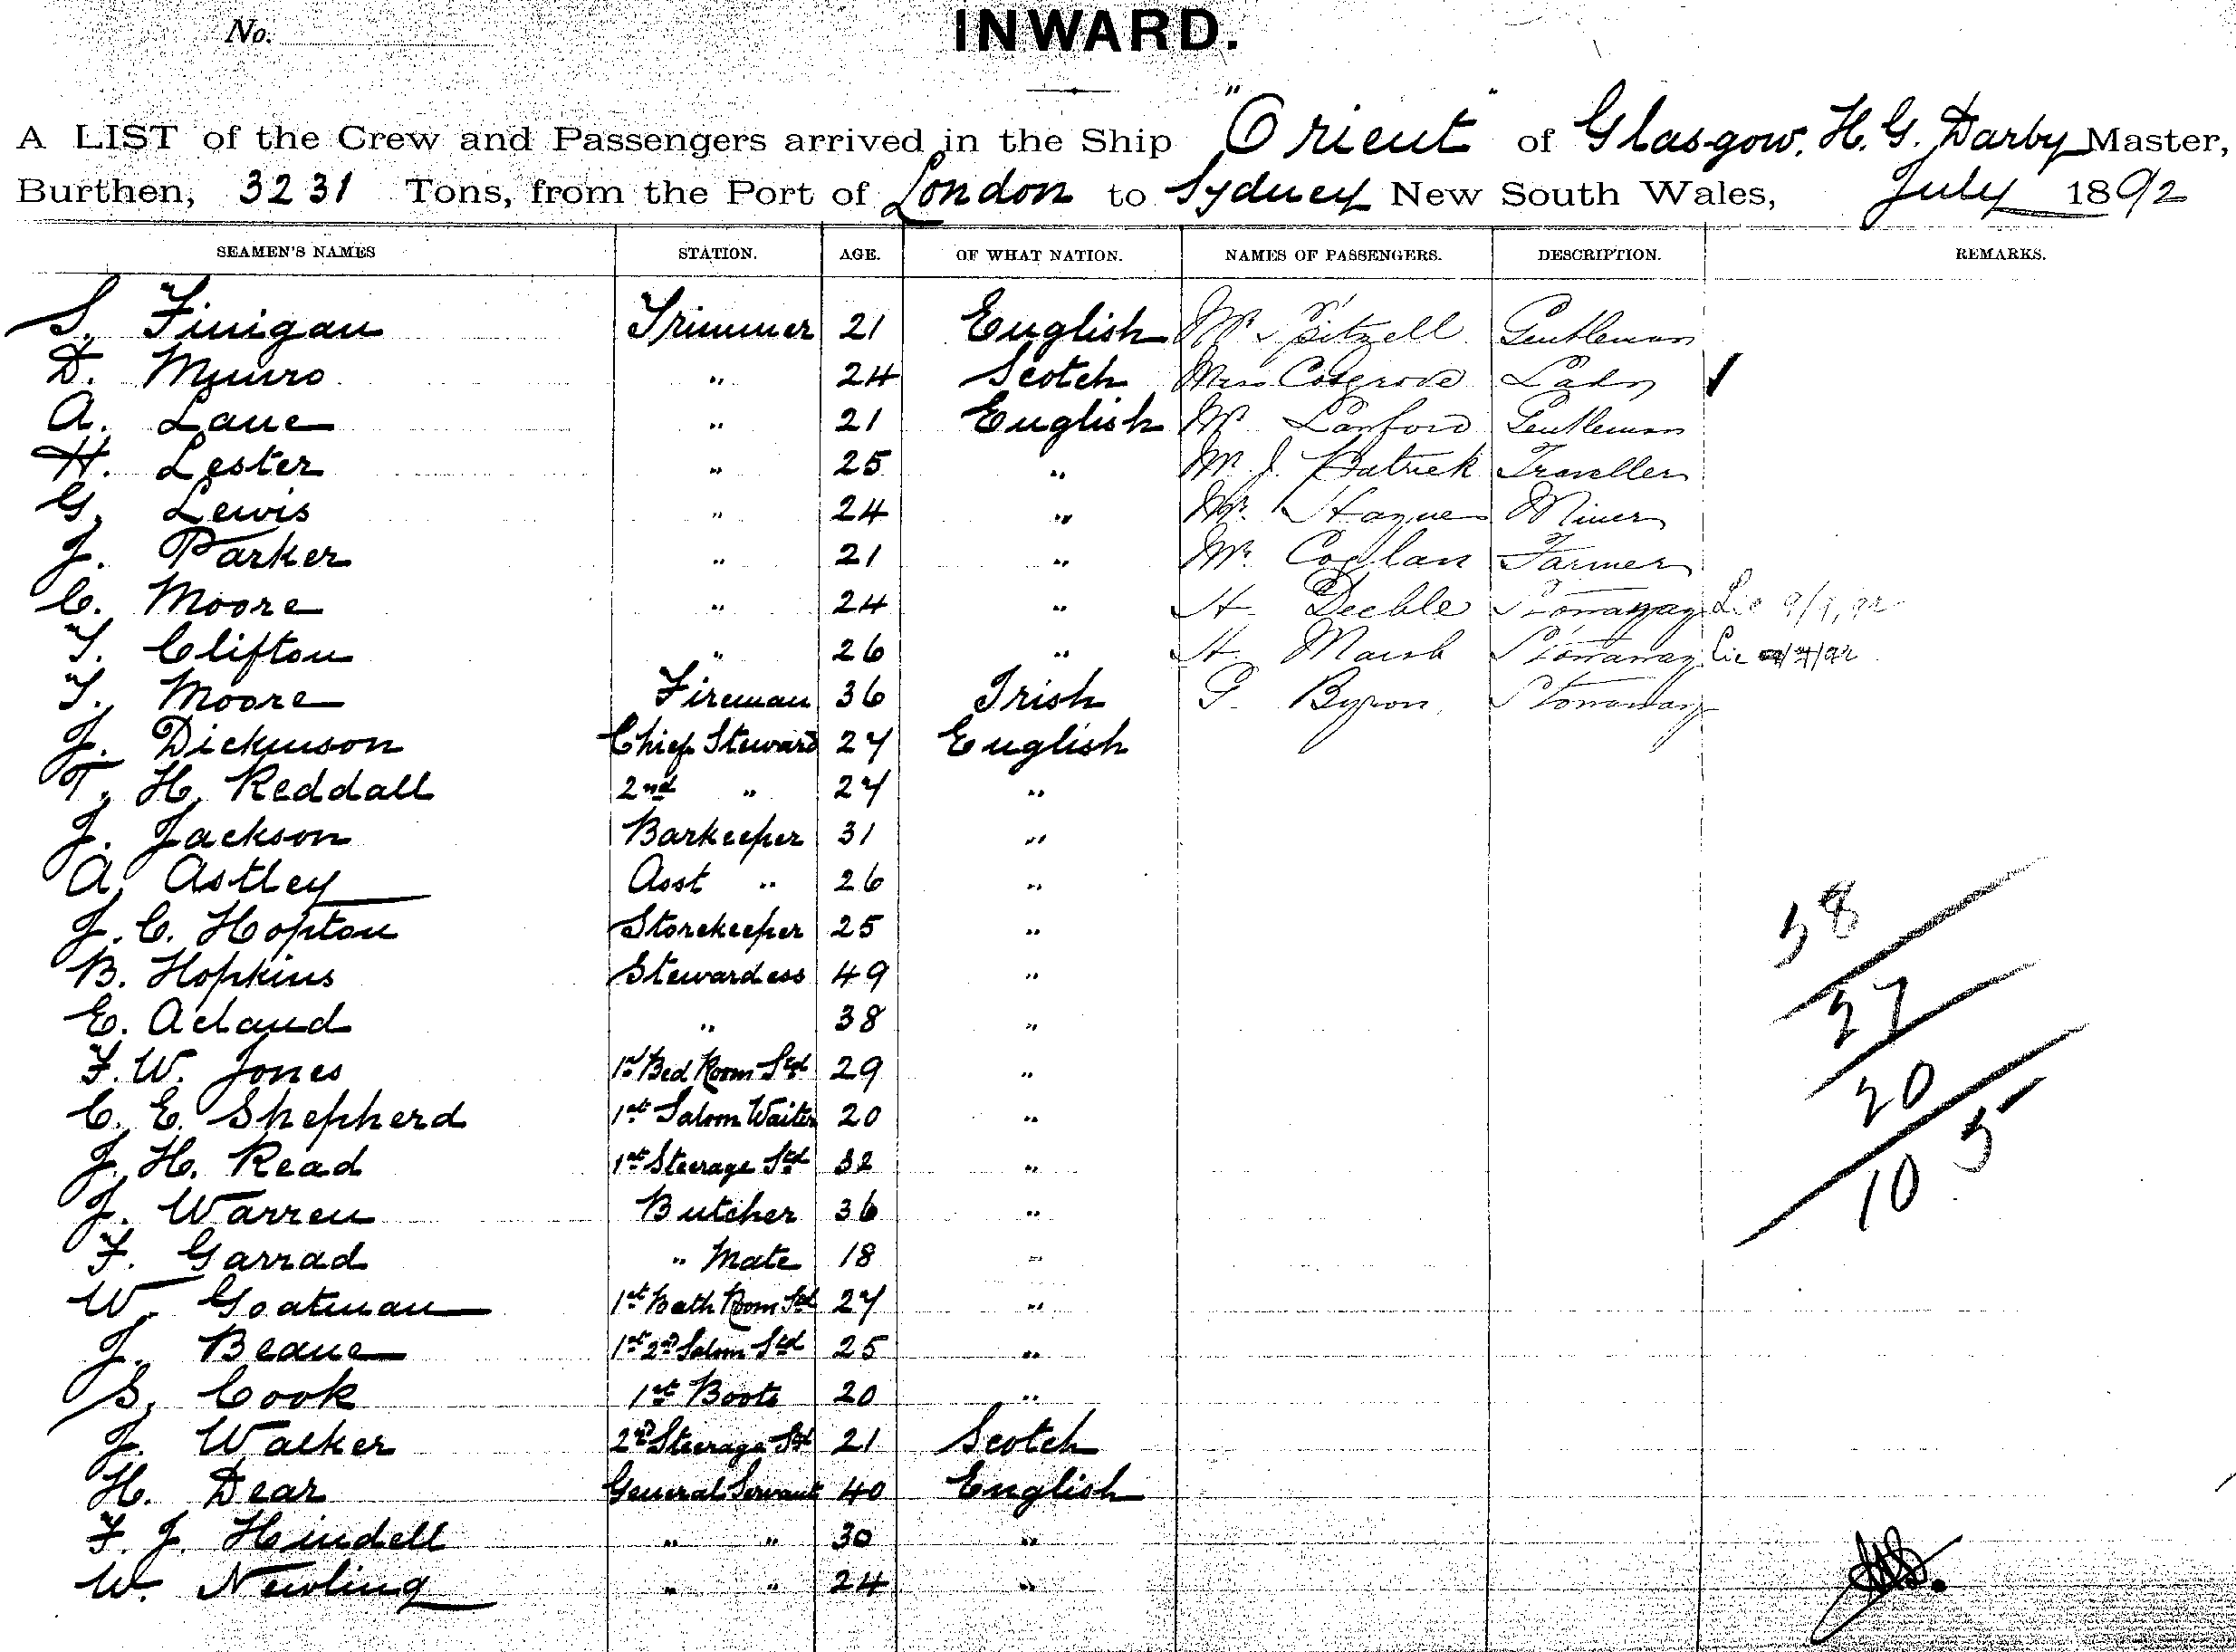 No.
INWARD.
A LIST of the Crew and Passengers arrived in the Ship "Orient" of Glasgow, H. G. Darby Master,
Burthen, 3231 Tons, from the Port of London to Sydney New South Wales, July 1892
SEAMEN'S NAMES STATION. AGE. OF WHAT NATION. NAMES OF PASSENGERS. DESCRIPTION. REMARKS.
S. Finigan Trimmer 21 English Mr Gentleman
D. Munro " 24 Scotch Mrs Cosgrove Lady
A. Lane " 21 English Mr Lanford Gentleman
H. Lester " 25 " Mr J. Patrick Traveller
G. Lewis " 24 " Mr. Haynes Miner
J. Parker " 21 " Mr. Coglan Farmer
C. Moore " 24 " H. Deeble Stowaway
T. Clifton " 26 " H. Marsh Stowaway
T. Moore Fireman 36 Irish G. Byron Stowaway
J. Dickinson Chief Steward 27 English
T. H. Reddall 2nd " 27 "
J. Jackson Barkeeper 31 "
A. Astley Asst " 26 "
J. C. Hopton Storekeeper 25 "
B. Hopkins Stewardess 49 "
E. Acland " 38 "
F. W. Jones 1st Bed Room Std 29 "
C. E. Shepherd 1st Saloon Waiter 20 "
J. H. Read 1st Steerage Std 32 "
J. Warren Butcher 36 "
F. Garrad " Mate 18 "
W. Goatman 1st Bath Room Std 27 "
J. Beane 1st 2nd Saloon Std 25 "
S. Cook 1st Boots 20 "
J. Walker 2nd Steerage Std 21 Scotch
H. Dear General Servant 40 English
F. J. Hindell " " 30 "
W. Newling " " 24 "
58
27
20
5
10